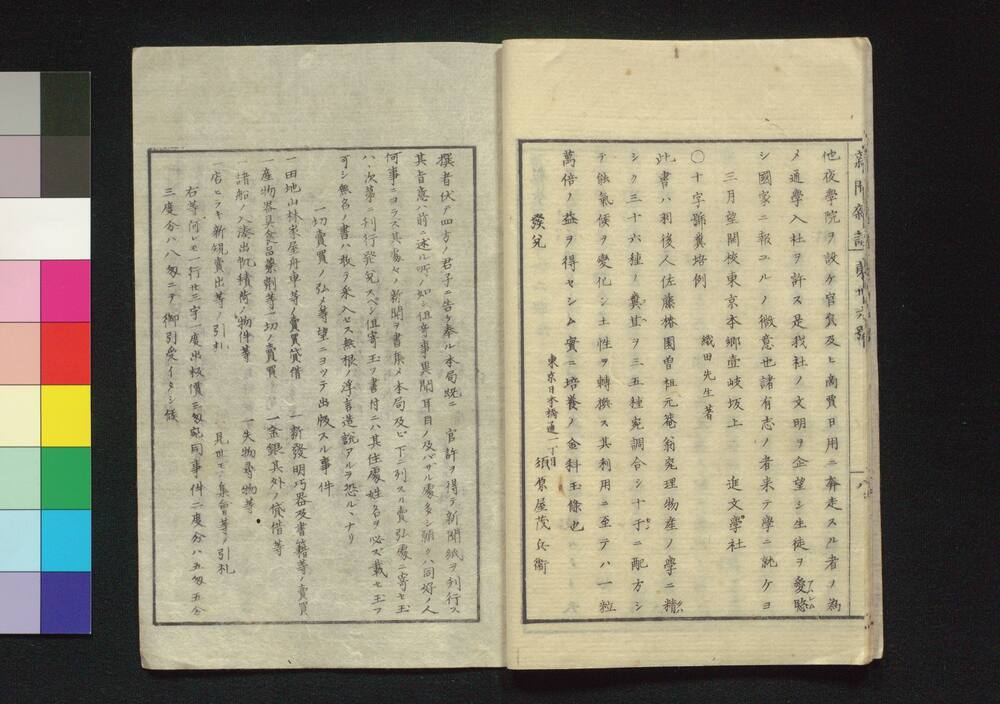 新聞雜誌 第卅六號
八
他夜學院ヲ設ケ官員及ヒ商賈日用ニ奔走スル者ノ為
メ通學入社ヲ許ス是我社ノ文明ヲ企望シ生徒ヲ愛愍
シ國家ニ報ユルノ微意也諸有志ノ者来テ學ニ就ケヨ
三月望開校東京本郷壹岐坂上 進文學社
〇十字號糞培例 織田先生著
此書ハ羽後人佐藤椿園曽祖元菴翁究理物産ノ學ニ精
シク三十六種ノ糞苴ヲ三五種宛調合シ十干ニ配方シ
テ能氣候ヲ變化シ土性ヲ轉換ス其利用ニ至テハ一粒
萬倍ノ益ヲ得セシム實ニ培養ノ金科玉條也
發兌 東京日本橋通一丁目 須原屋茂兵衞
撰者伏テ四方ノ君子ニ告ケ奉ル本局既ニ 官許ヲ得テ新聞紙ヲ刊行ス
其旨意ハ前ニ述ル所ノ如シ但竒事異聞耳目ノ及バサル處多シ願クハ同好ノ人
何事ニヨラス其處々ノ新聞ヲ書集メ本局及ヒ下ニ列スル賣弘處ニ寄セ玉
ハヽ次第ニ刊行發兌スベシ但寄玉フ書付ニハ其住處姓名ヲ必ズ載セ玉フ
可シ無名ノ書ハ敢テ采入セス無根ノ浮言造説アルヲ恐ルヽナリ
一切賣買ノ弘メ等望ニヨツテ出版スル事件
一田地山林家屋舟車等ノ賣買貸借 一新發明巧器及書籍等ノ賣買
一産物器具食品藥劑等一切ノ賣買 一金銀其外ノ貸借等
一諸船ノ入港出帆積荷ノ物件等 一失物尋物等
一店ヒラキ新規賣出等ノ引札 一見世モノ集會等ノ引札
右等何レモ一行廿三字一度出板價三匁宛同事件二度分ハ五匁五分
三度分ハ八匁ニテ御引受イタシ候